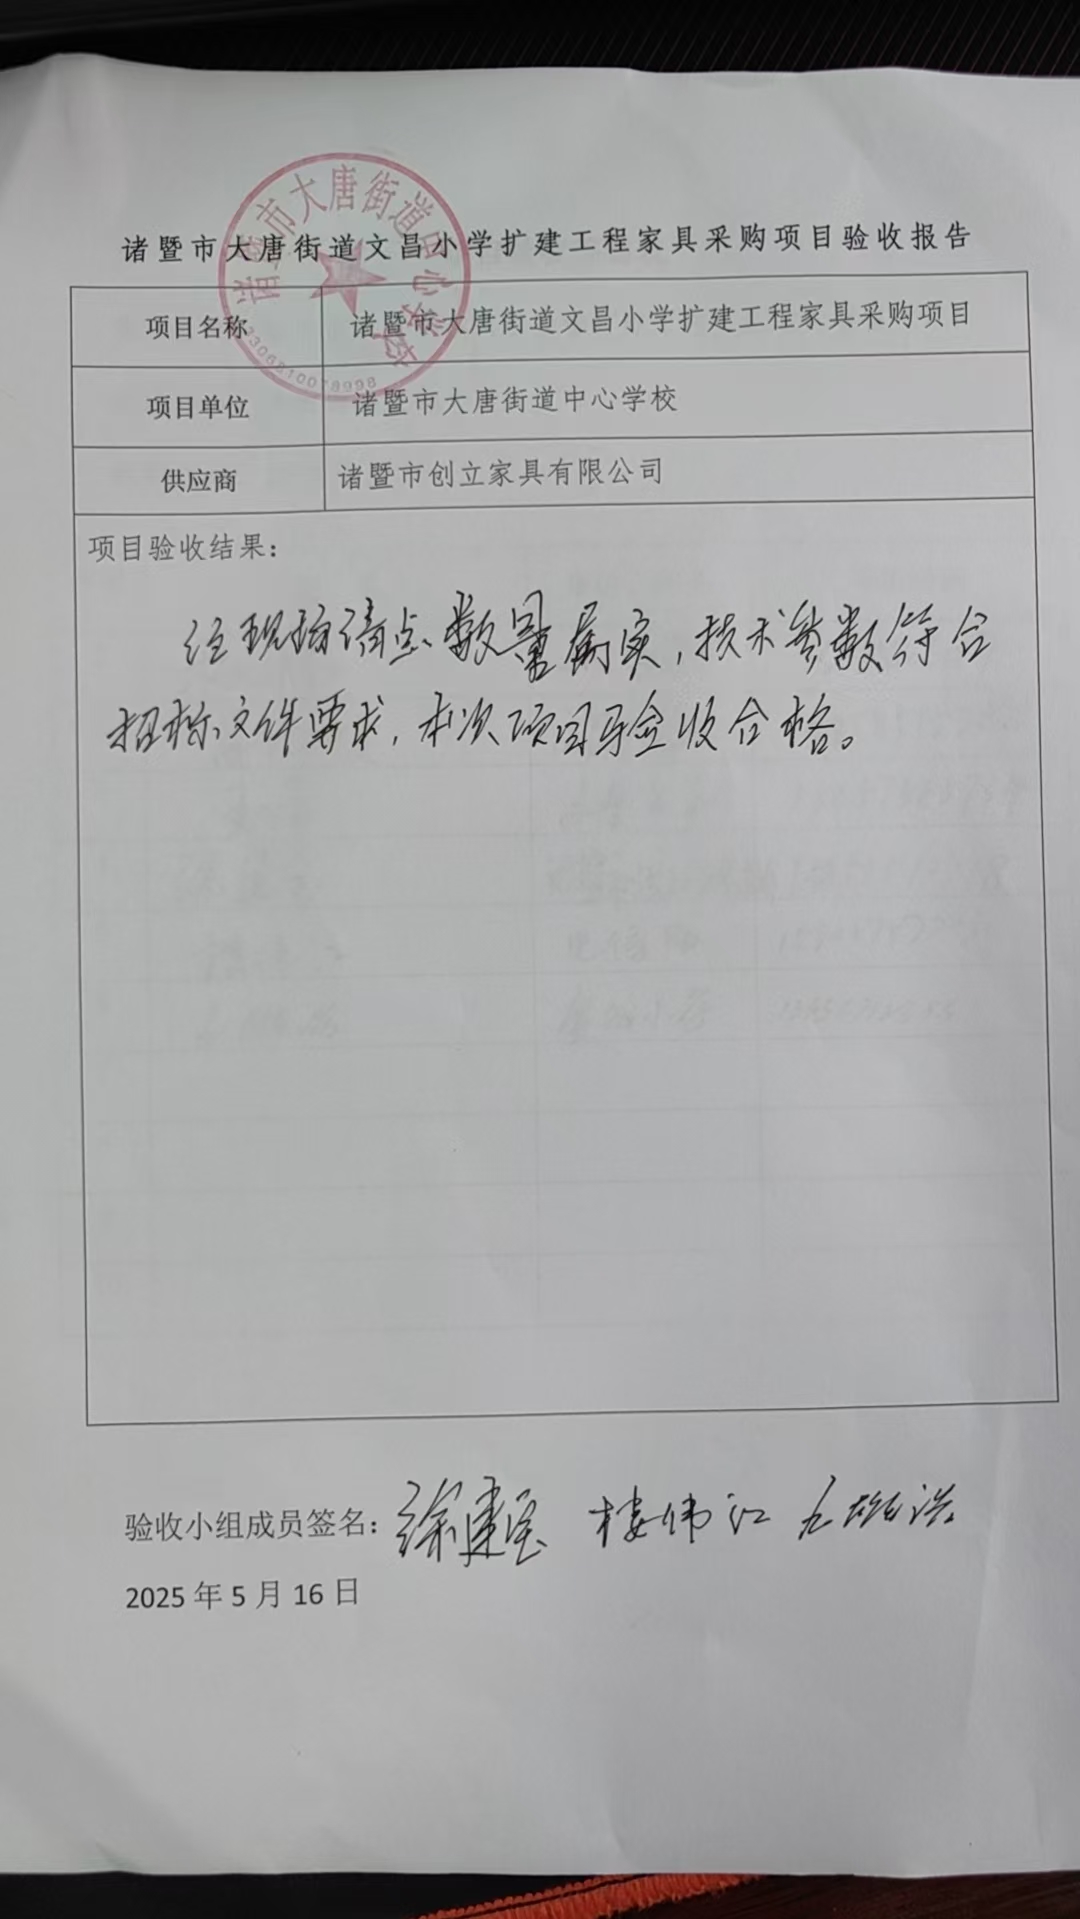 诸暨市大唐街道中心学校
3306810018998
诸暨市大唐街道文昌小学扩建工程家具采购项目验收报告
项目名称 诸暨市大唐街道文昌小学扩建工程家具采购项目
项目单位 诸暨市大唐街道中心学校
供应商 诸暨市创立家具有限公司
项目验收结果：
经现场清点，数量属实，技术参数符合
招标文件要求，本次项目验收合格。
验收小组成员签名：徐建 楼伟江
2025 年 5 月 16 日